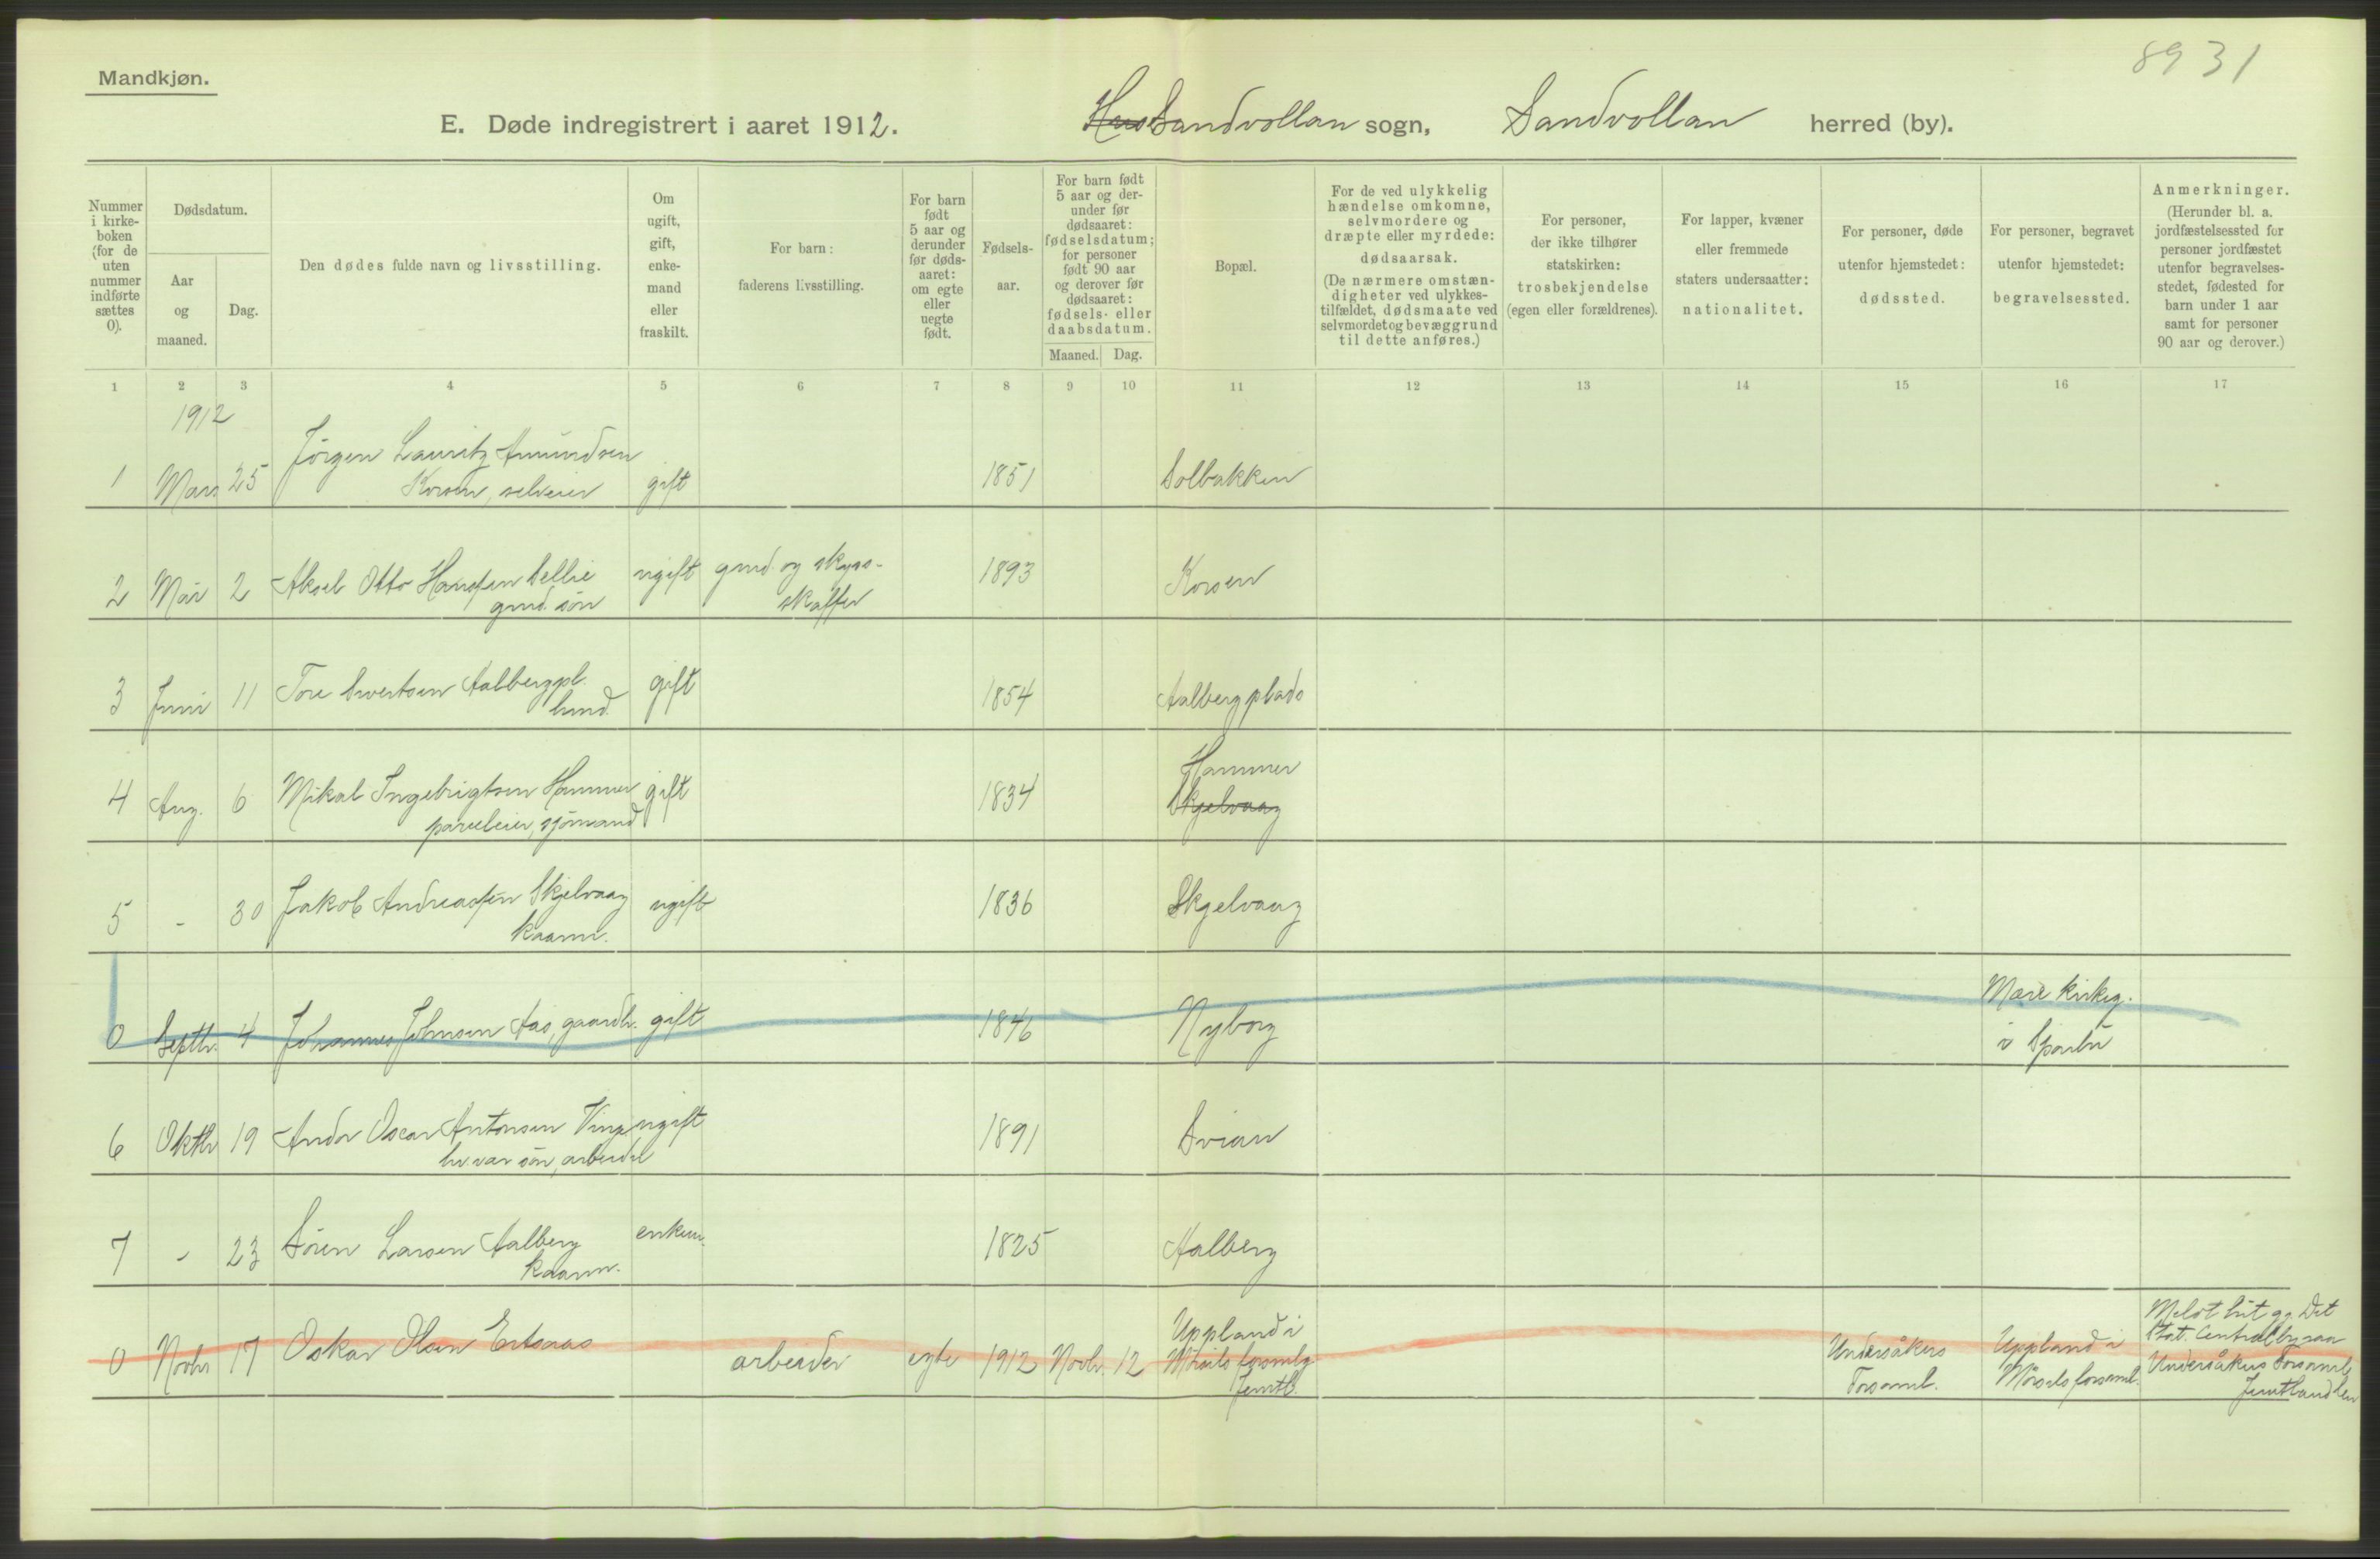 89 31
Mandkjøn.
E. Døde indregistrert i aaret 1912. Sandvollan sogn, Sandvollan herred (by).
Nummer i kirke-boken (for de uten nummer indførte sættes 0).
Dødsdatum.
Aar og maaned.
Dag.
Den dødes fulde navn og livsstilling.
Om ugift, gift, enke-mand eller fraskilt.
For barn: faderens livsstilling.
For barn født 5 aar og derunder før døds-aaret: om egte eller uegte født.
Fødsels-aar.
For barn født 5 aar og der-under før dødsaaret: fødselsdatum; for personer født 90 aar og derover før dødsaaret: fødsels- eller daabsdatum.
Maaned. Dag.
Bopæl.
For de ved ulykkelig hændelse omkomne, selvmordere og dræpte eller myrdede: dødsaarsak. (De nærmere omstæn-digheter ved ulykkes-tilfældet, dødsmaate ved selvmordet og bevæggrund til dette anføres.)
For personer, der ikke tilhører statskirken: trosbekjendelse (egen eller forældrenes).
For lapper, kvæner eller fremmede staters undersaatter: nationalitet.
For personer, døde utenfor hjemstedet: dødssted.
For personer, begravet utenfor hjemstedet: begravelsessted.
Anmerkninger. (Herunder bl. a. jordfæstelsessted for personer jordfæstet utenfor begravelses-stedet, fødested for barn under 1 aar samt for personer 90 aar og derover.)
1 2 3 4 5 6 7 8 9 10 11 12 13 14 15 16 17
1912
1 Mars 25 Jörgen Lauritz Amundsen gift 1851 Solbakken
Korsen, selveier
2 Mai 2 Aksel Otto Hansen Sellie ugift gmd. og skyss- 1893 Korsen
gmd. sön skaffer
3 Juni 11 Tore Sivertsen Aalbergpl. gift 1854 Aalbergplads
husmd.
4 Aug. 6 Mikal Ingebrigtsen Hammer gift 1834 Hammer
parceleier, sjömand Skjelvaag
5 - 30 Jakob Andreassen Skjelvaag ugift 1836 Skjelvaag
kaarm.
0 Septbr. 4 Johannes Johnsen Aas, gaardbr. gift 1846 Nyborg Mære kirkeg.
i Sparbu
6 Oktbr 19 Andor Oscar Antonsen Ving ugift 1891 Svian
sön, arbeider
7 - 23 Sören Larsen Aalberg enkem. 1825 Aalberg
kaarm.
0 Novbr 17 Oskar Olsen Ertsaas arbeider egte 1912 Novbr. 12 Uppland i
Mörsils forsamlg
Jemtl.
Undersåkers
Forsaml.
Uppland i
Mörsils forsaml.
Meldt hit gj. Det
Stat. Centralbyraa
Undersåkers Forsamlg
Jemtland len